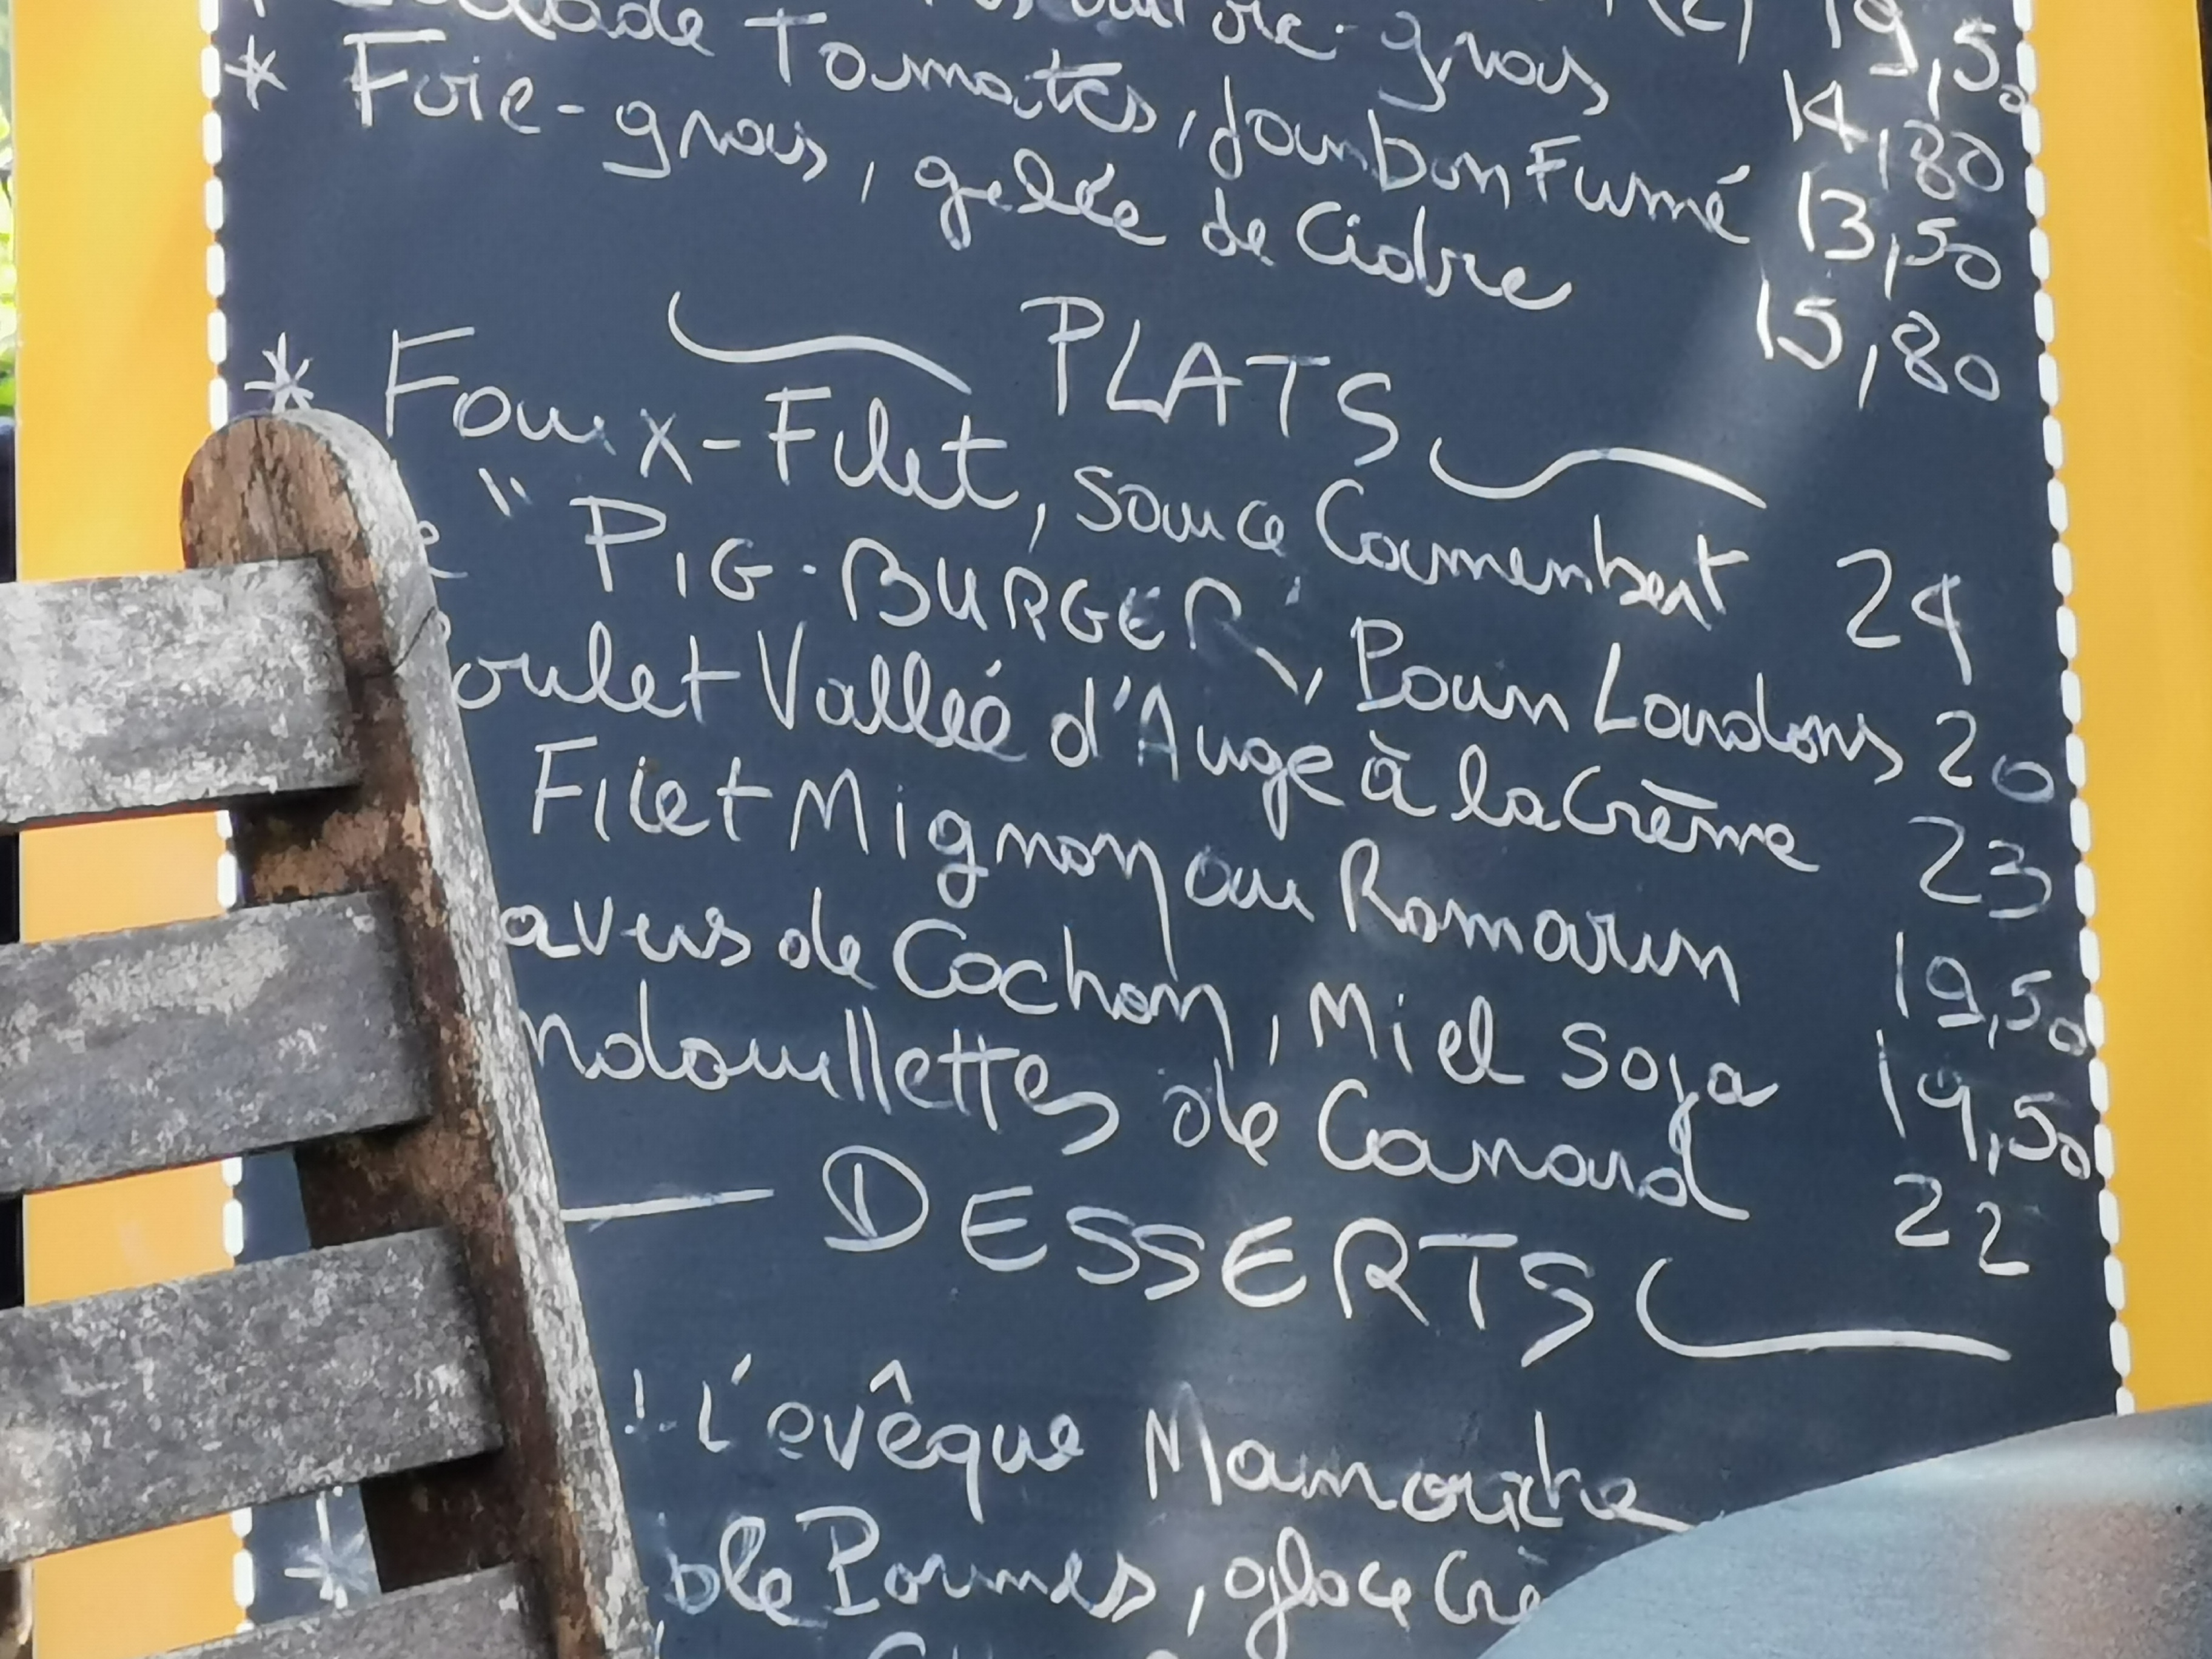 gras 19,50
Tomates, Jambon Fumé 14,80
* Foie-gras, gelée de Cidre 13,50
15,80
PLATS
* Faux-Filet, sauce Camembert 24
" PIG-BURGER", Pour Lardons 20
oulet Vallée d'Auge à la Crème 23
Filet Mignon au Romarin 19,50
avers de Cochon, Miel Soja 19,50
ndouillettes de Canard 22
DESSERTS
L'evêque
* Pommes, glace Crè